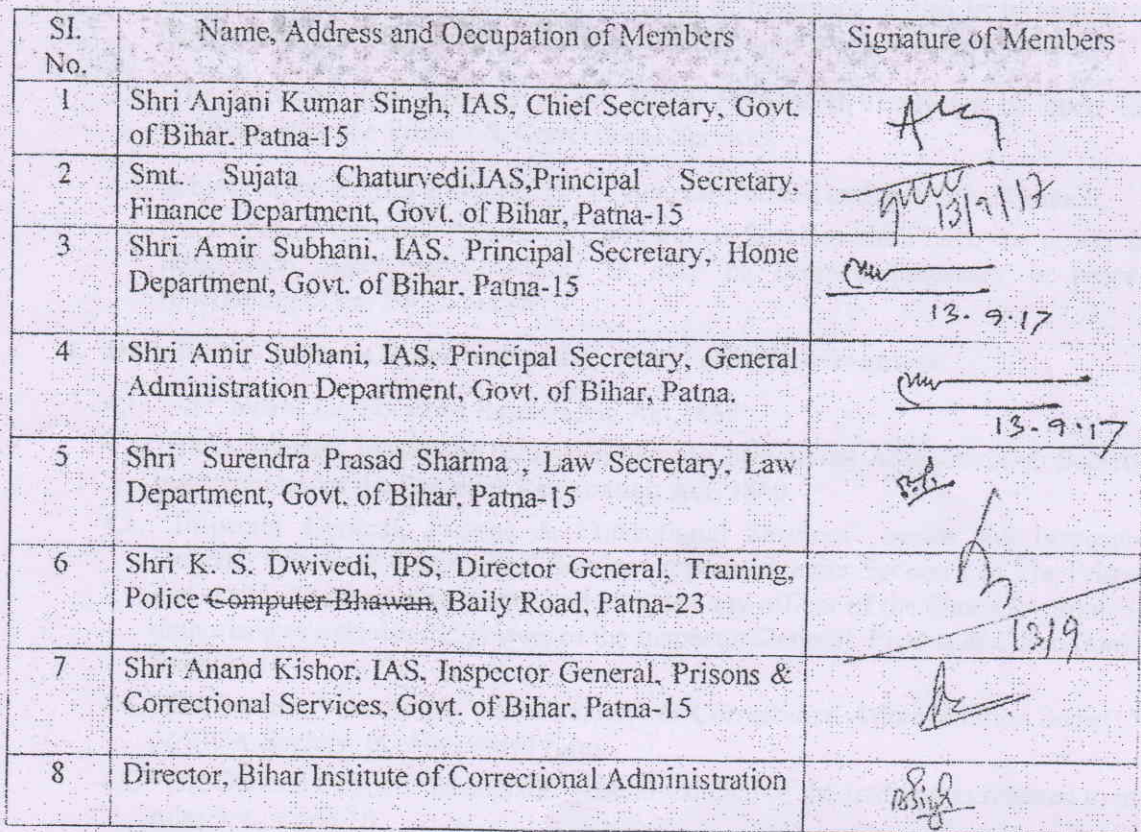 SI. Name, Address and Occupation of Members Signature of Members
No.
1 Shri Anjani Kumar Singh, IAS, Chief Secretary, Govt.
of Bihar. Patna-15
2 Smt. Sujata Chaturvedi.IAS,Principal Secretary.
Finance Department, Govt. of Bihar, Patna-15
13/9/17
3 Shri Amir Subhani, IAS. Principal Secretary, Home
Department, Govt. of Bihar. Patna-15
13.9.17
4 Shri Amir Subhani, IAS, Principal Secretary, General
Administration Department, Govt. of Bihar, Patna.
13-9-17
5 Shri Surendra Prasad Sharma , Law Secretary, Law
Department, Govt. of Bihar. Patna-15
6 Shri K. S. Dwivedi, IPS, Director General, Training,
Police Computer Bhawan, Baily Road, Patna-23
13/9
7 Shri Anand Kishor, IAS, Inspector General, Prisons &
Correctional Services, Govt. of Bihar. Patna-15
8 Director, Bihar Institute of Correctional Administration